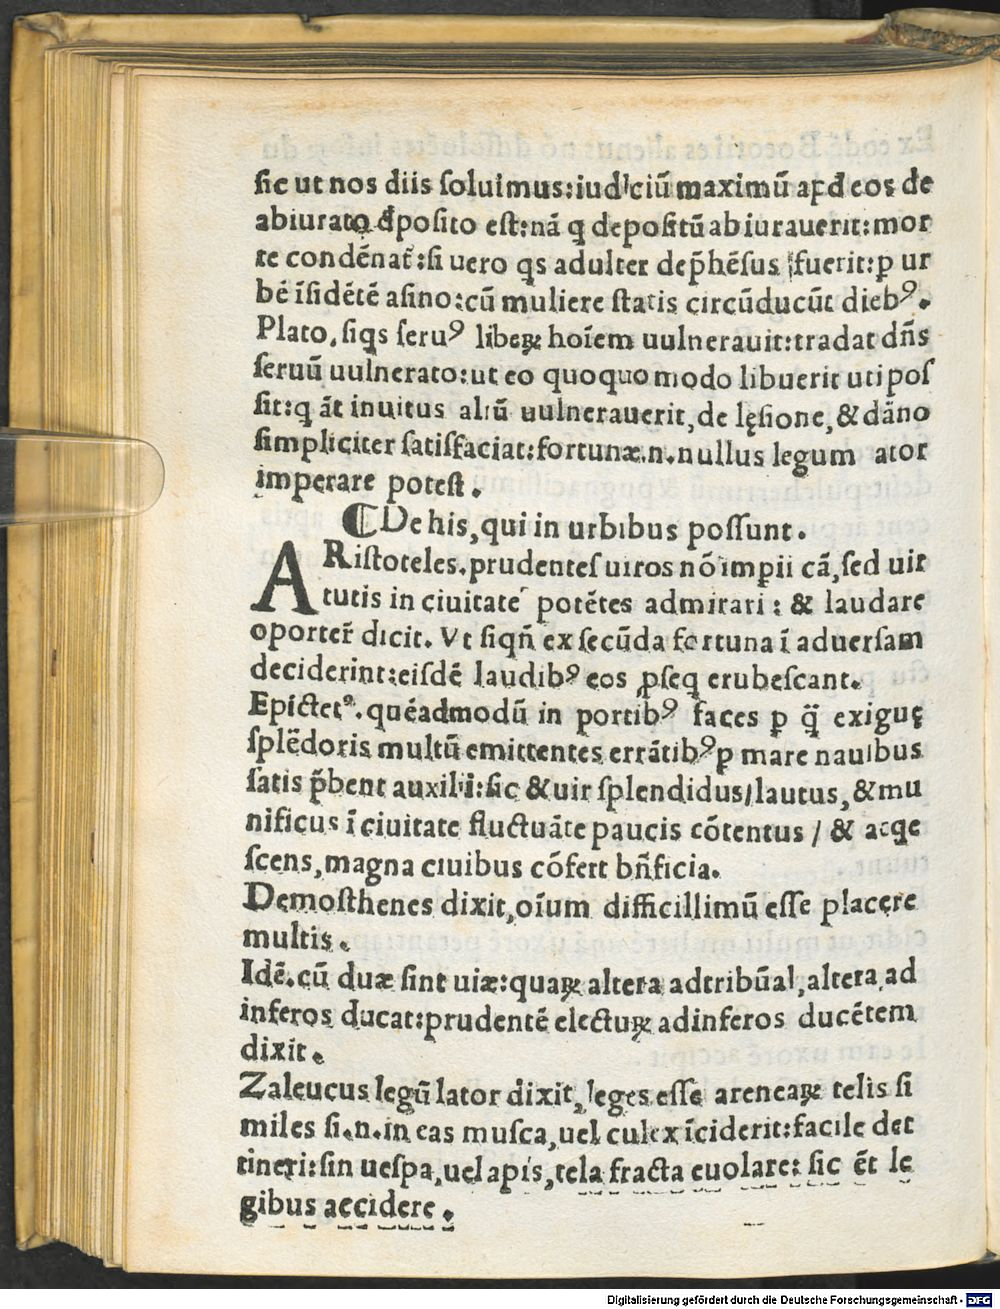 sic ut nos diis soluimus:iudiciū maximū apđ eos de
abiurato đposito est:nā q depositū abiurauerit:mor
te condēnat̄:si uero qs adulter dep̄hēsus fuerit:ꝑ ur
bē īsidētē asino:cū muliere statis circūducūt dieb⁹.
Plato.siqs seru⁹ libeꝝ hoīem uulnerauit:tradat dn̄s
seruū uulnerato:ut eo quoquo modo libuerit uti pos
sit:q āt inuitus aliū uulnerauerit,de lęsione,& dāno
simpliciter satisfaciat:fortunæ.n.nullus legum ator
imperare potest.
⸿De his,qui in urbibus possunt.
ARistoteles.prudentes uiros nō imꝑii cā,sed uir
tutis in ciuitate potētes admirari: & laudare
oporter̄ dicit. Vt siqn̄ ex secūda fortuna ī aduersam
deciderint:eisdē laudib⁹ eos ꝓseq erubescant.
Epictet⁹.quéadmodū in portib⁹ faces ꝑ q̄ exiguę
splēdoris multū emittentes errātib⁹ ꝑ mare nauibus
satis p̄bent auxilii:sic & uir splendidus/lautus,& mu
nificus ī ciuitate fluctuāte paucis cōtentus / & acqe
scens,magna ciuibus cōfert bn̄ficia.
Demosthenes dixit,oīum difficillimū esse placere
multis.
Idē.cū duæ sint uiæ:quaꝝ altera ad tribūal,altera ad
inferos ducat:prudentē electuꝝ ad inferos ducētem
dixit.
Zaleucus legū lator dixit, leges esse areneaꝝ telis si
miles si.n.in eas musca,uel culex īciderit:facile det
tineri:sin uespa,uel apis,tela fracta euolare: sic ēt le
gibus accidere.
Digitalisierung gefördert durch die Deutsche Forschungsgemeinschaft - DFG